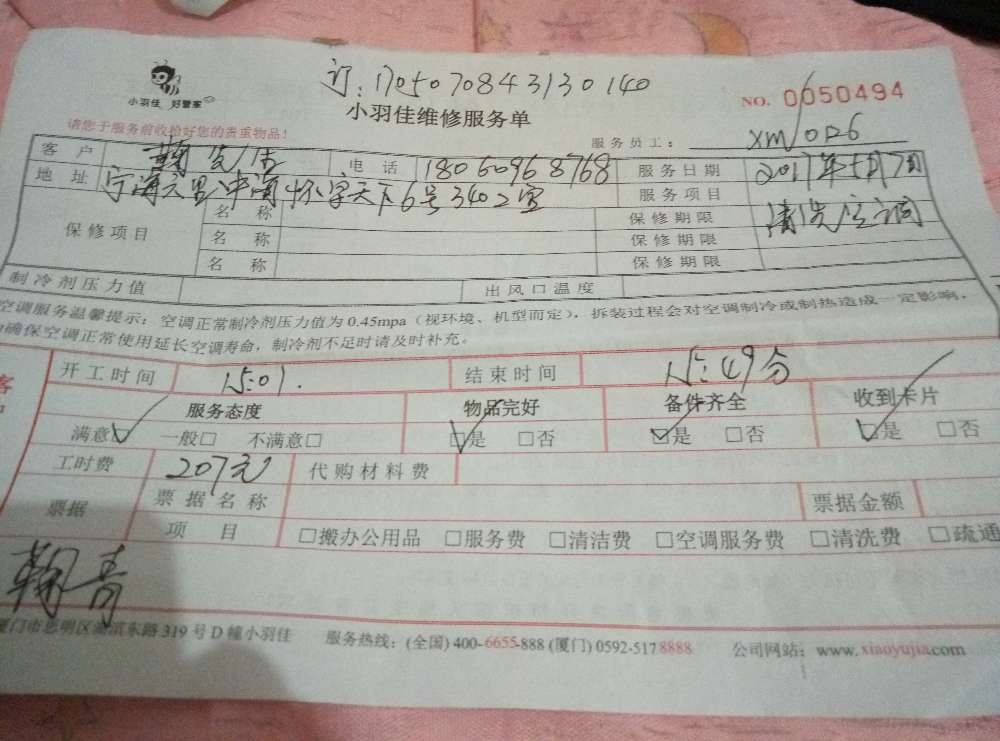 订:1705070843130140
小羽佳 好管家
小羽佳维修服务单
NO. 0050494
请您于服务前收检好您的贵重物品!
服务员工: XM/0126
客户 电话 18060968768 服务日期 2017年5月7日
地址 6号3402室 服务项目 清洗空调
保修项目 名称 保修期限
名称 保修期限
名称 保修期限
制冷剂压力值 出风口温度
空调服务温馨提示:空调正常制冷剂压力值为0.45mpa(视环境、机型而定),拆装过程会对空调制冷或制热造成一定影响,
确保空调正常使用延长空调寿命,制冷剂不足时请及时补充。
开工时间 15:01. 结束时间 15:49分
服务态度 物品完好 备件齐全 收到卡片
满意☑ 一般□ 不满意□ ☑是 □否 ☑是 □否 ☑是 □否
工时费 207元 代购材料费
票据 票据名称 票据金额
项目 □搬办公用品 □服务费 □清洁费 □空调服务费 □清洗费 □疏通
厦门市思明区湖滨东路319号D幢小羽佳 服务热线:(全国)400-6655-888 (厦门)0592-5178888 公司网站:www.xiaoyujia.com